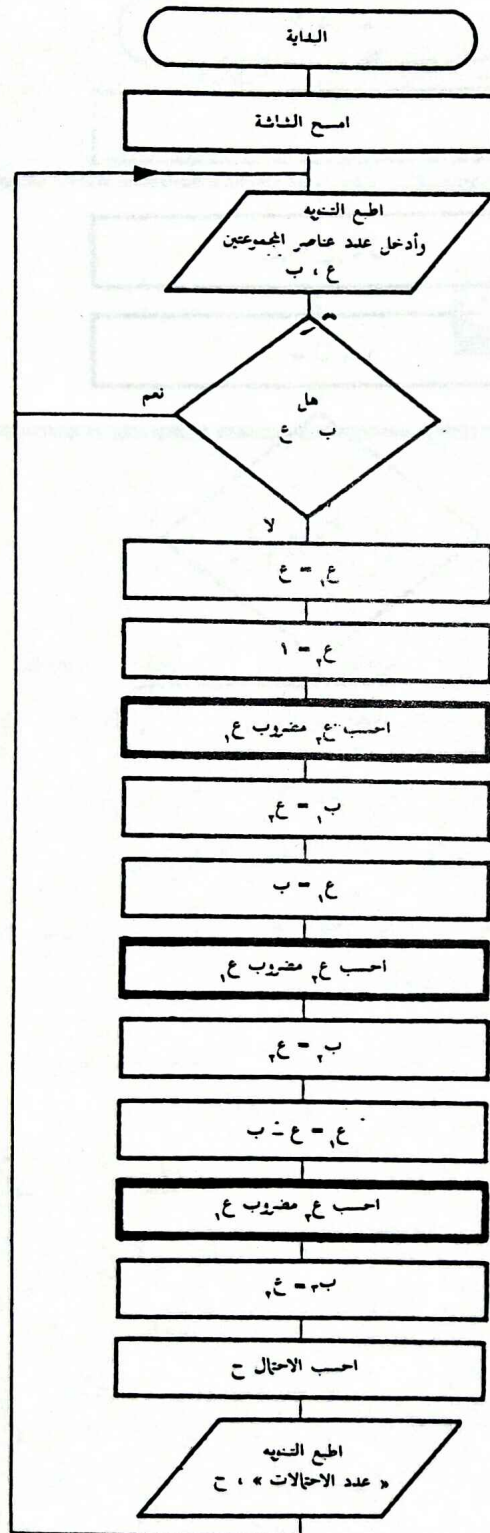 البداية
امسح الشاشة
اطبع التنويه
وأدخل عدد عناصر المجموعتين
ع ، ب
هل
ب ع
نعم
لا
ع₁ = ع
ع₂ = ١
احسب ع₂ مضروب ع₁
ب₁ = ع₂
ع₁ = ب
احسب ع₂ مضروب ع₁
ب₂ = ع₂
ع₁ = ع - ب
احسب ع₂ مضروب ع₁
ب₃ = ع₂
احسب الاحتمال ح
اطبع التنويه
« عدد الاحتمالات » ، ح